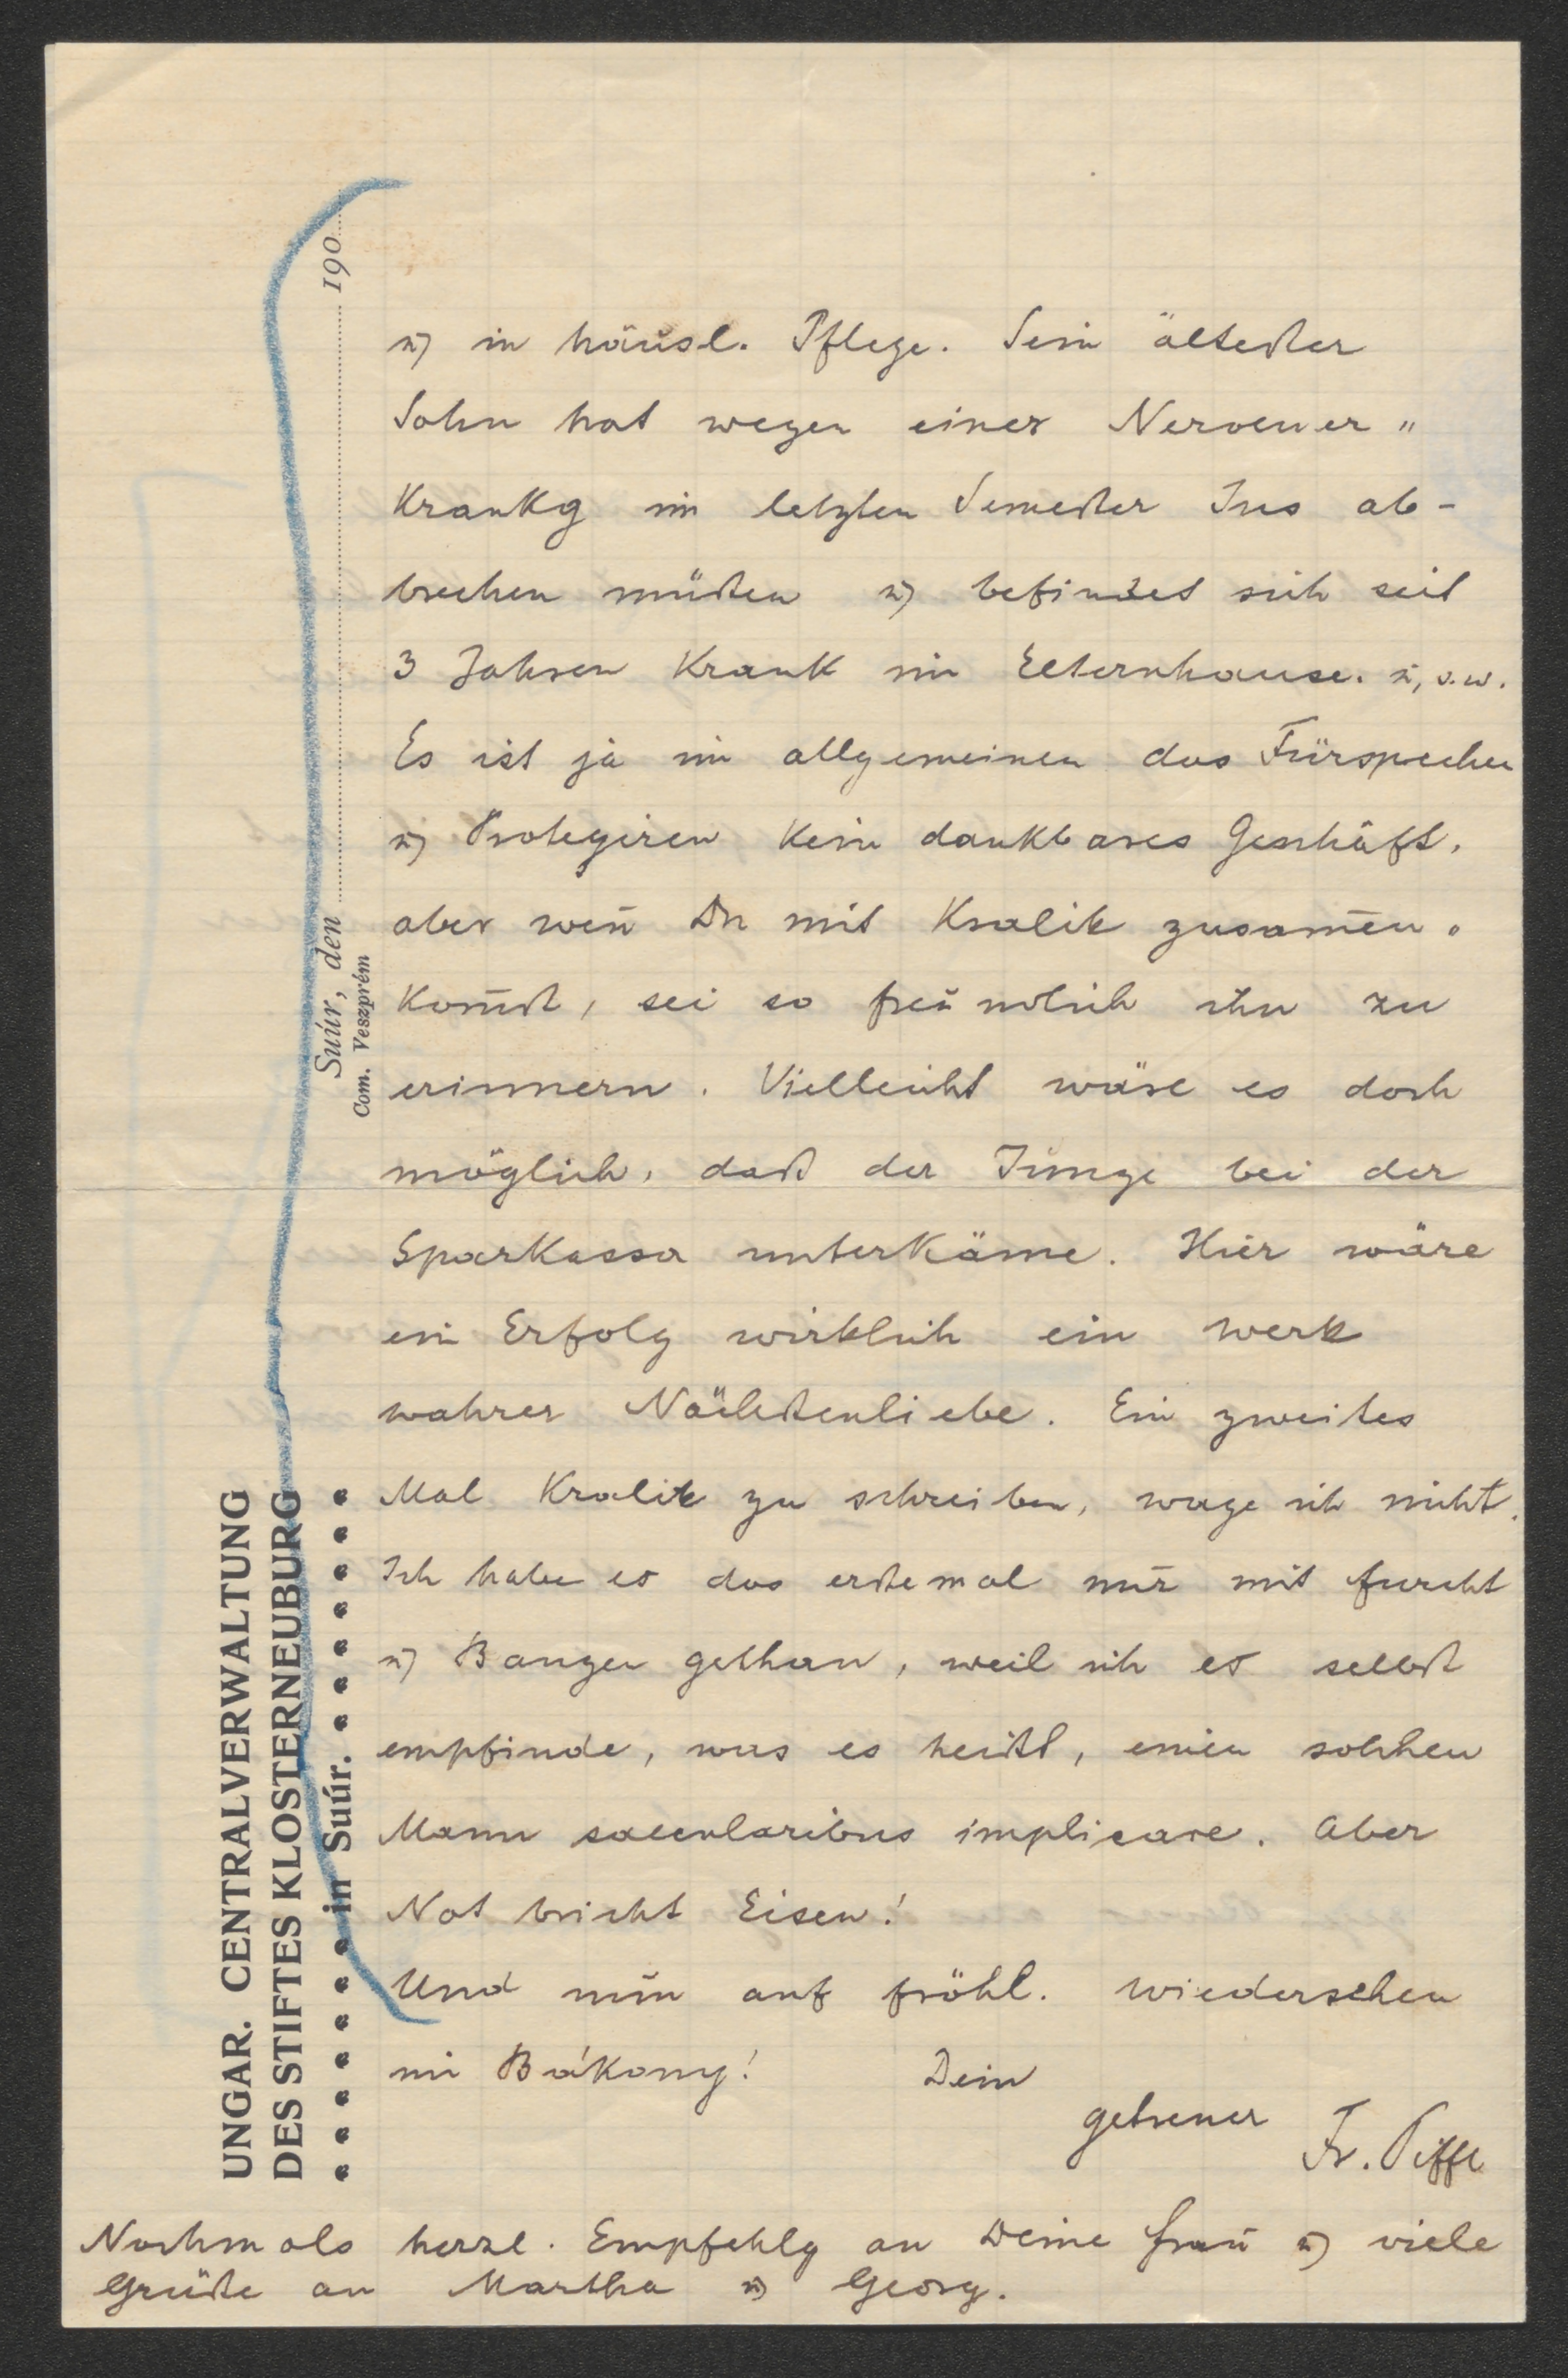 UNGAR. CENTRALVERWALTUNG
DES STIFTES KLOSTERNEUBURG
in Suúr.
Suúr, den 190
Com. Veszprém
u) in häusl. Pflege. Sein ältester
Sohn hat wegen einer Nervener„
krankg im letzten Semester Jus ab-
brechen müßen u) befindet sich seit
3 Jahren krank im Elternhause. u, s. w.
Es ist ja im allgemeinen das Fürsprechen
u) Protegiren kein dankbares Geschäft,
aber wen̄ Du mit Kralik zusam̄en„
kom̄st, sei so freundlich ihn zu
erinnern. Vielleicht wäre es doch
möglich, daß der Junge bei der
Sparkassa unterkäme. Hier wäre
ein Erfolg wirklich ein Werk
wahrer Nächstenliebe. Ein zweites
Mal Kralik zu schreiben, wage ich nicht.
Ich habe es das erstemal nur mit Furcht
u) Bangen gethan, weil ich es selbst
empfinde, was es heißt, einen solchen
Mann saecularibus implicare. Aber
Not bricht Eisen!
Und nun auf fröhl. Wiedersehen
im Bákony! Dein
getreuer Fr. Piffl
Nochmals herzl. Empfehlg an Deine Frau u) viele
Grüße an Martha u) Georg.